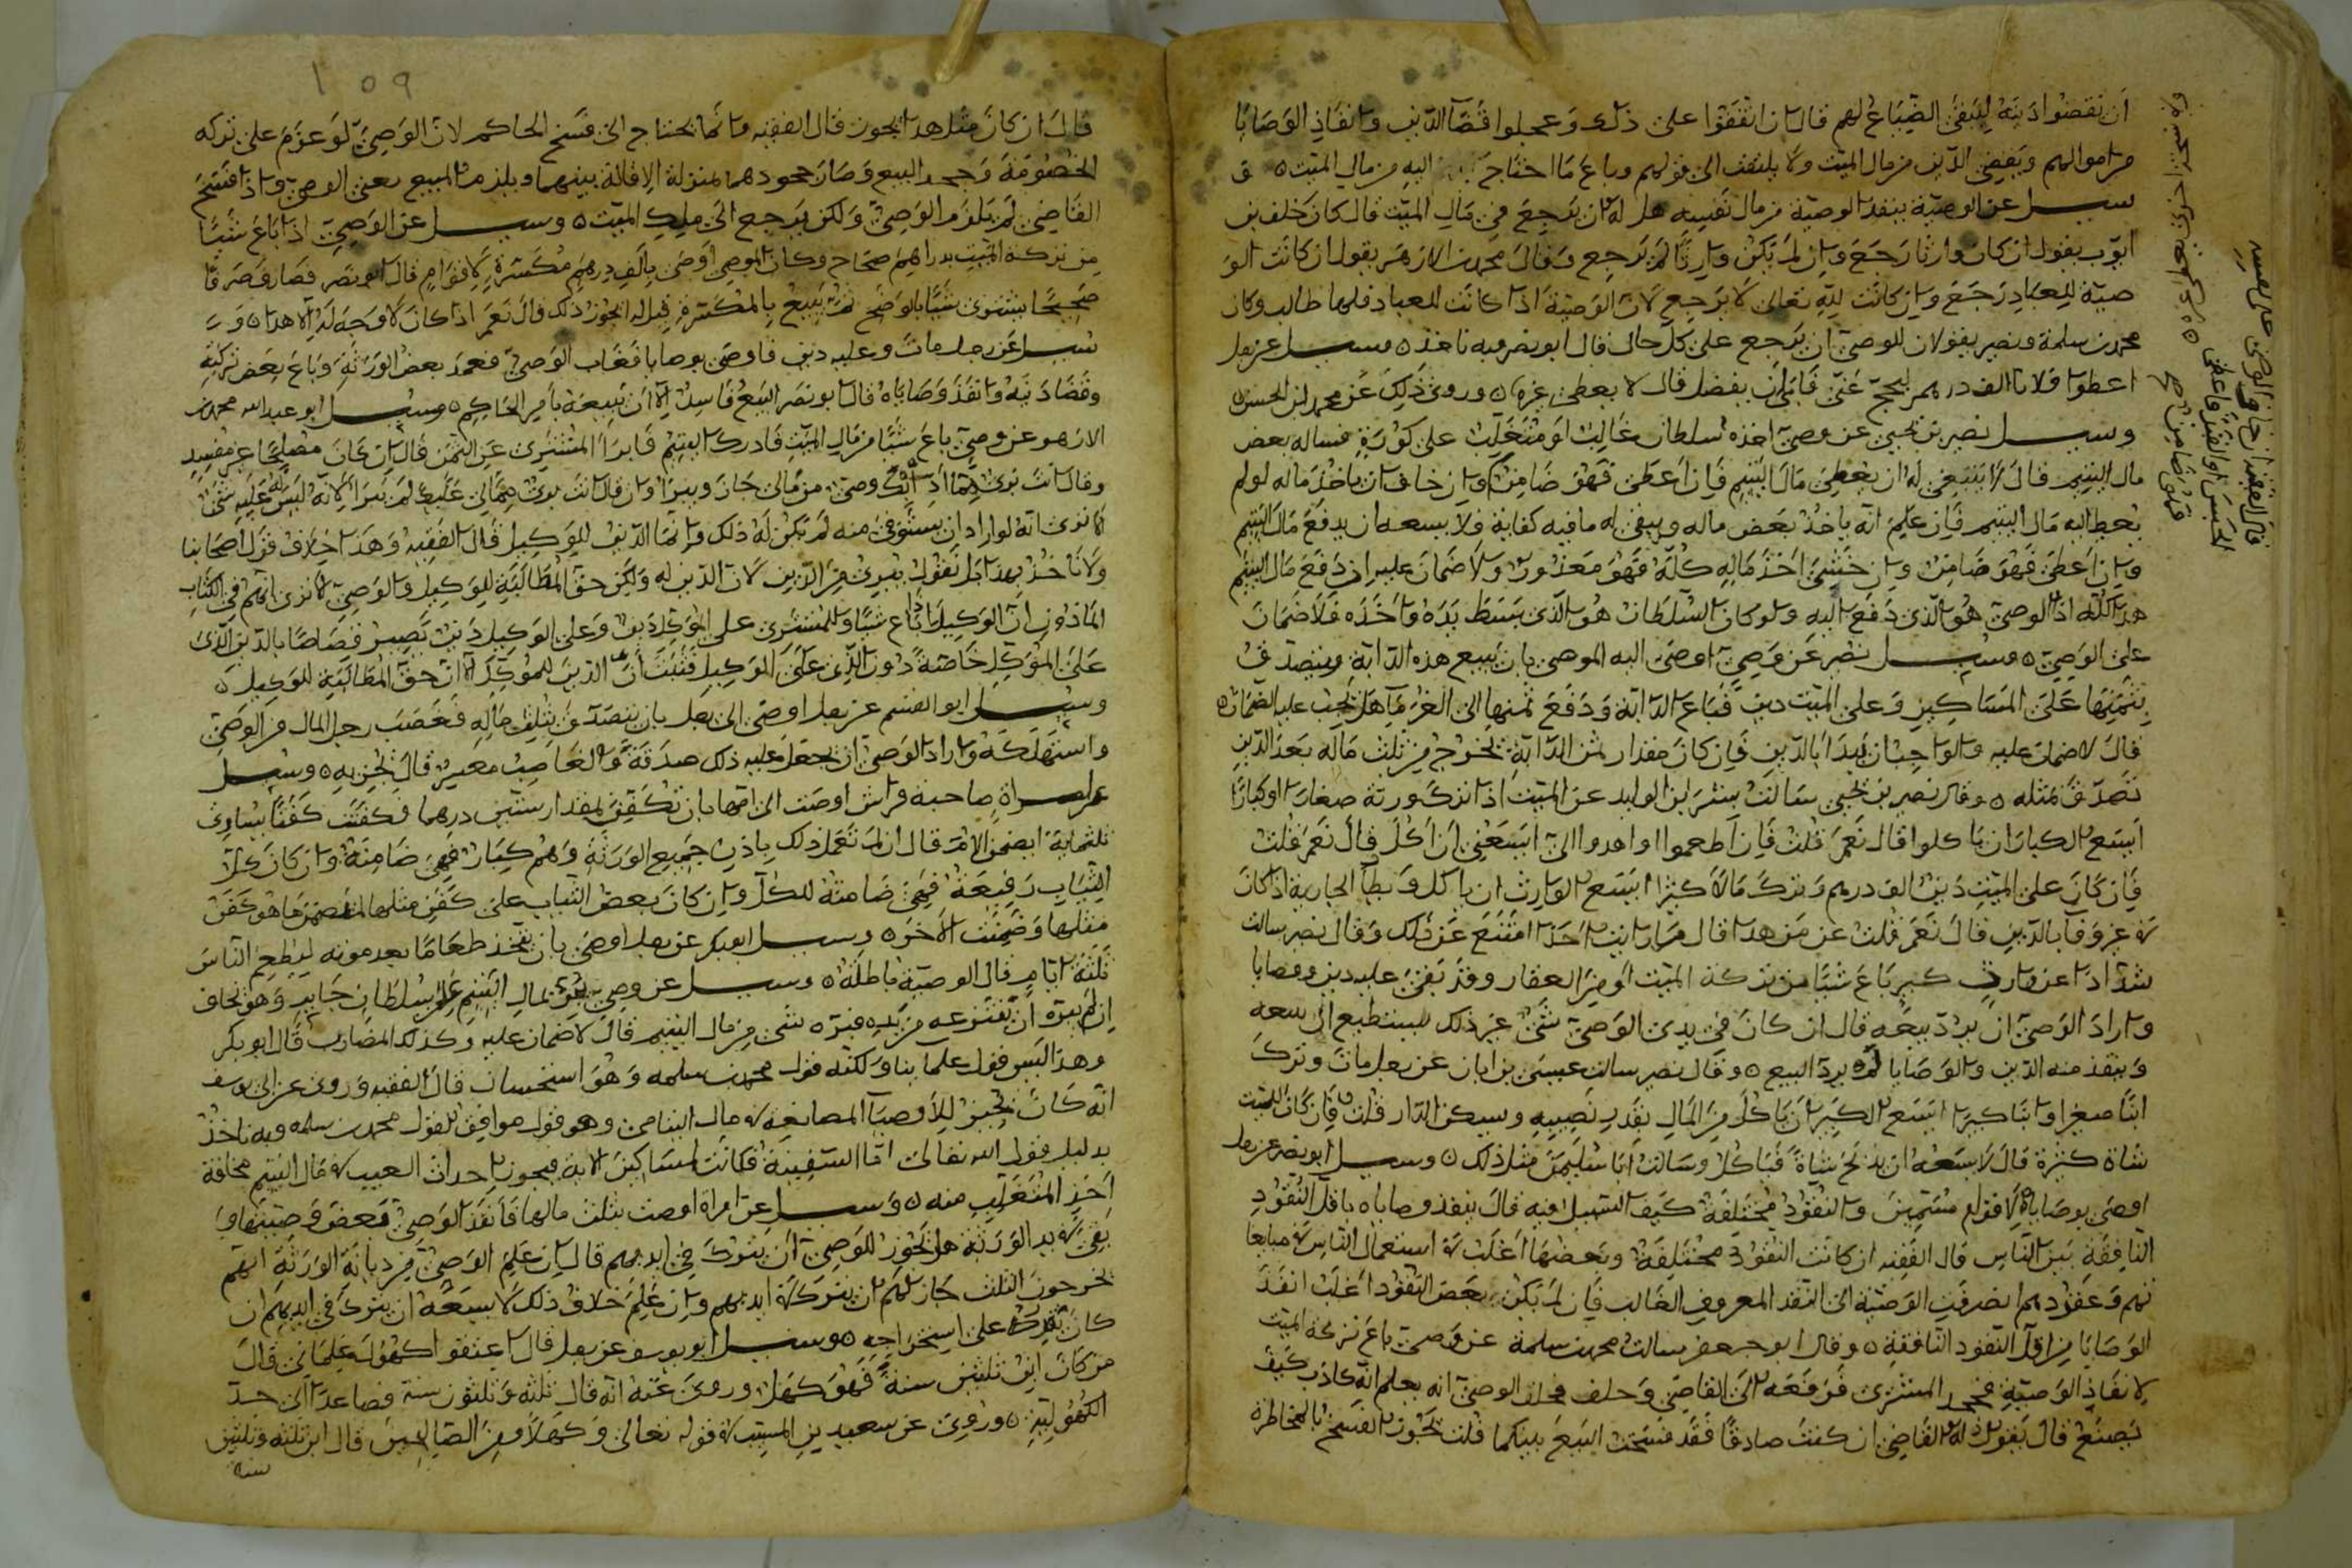 أن نقضوا دينه ليبقى الضياع لهم قال إن اتفقوا على ذلك وعجلوا قضاء الدين وإنفاذ الوصايا
من أموالهم ويقضي الدين من مال الميت ولا يلتفت الى قولهم وباع ما احتاج إليه من مال الميت
سئل عن الوصية ينفذ الوصية من مال نفسه هل له ان يرجع في مال الميت قال كان خلف بن
ايوب يقول ان كان وارثا رجع وإن لم يكن وارثا لم يرجع وقال محمد بن الازهر يقول ان كانت الو
صية للعباد رجع وإن كانت لله تعالى لا يرجع لان الوصية اذا كانت للعباد فلها طالب وكان
محمد بن سلمة ونصير يقولان للوصي ان يرجع على كل حال قال ابو نصر وبه ناخذ وسئل عن رجل
اعطوا فلانا الف درهم ليحج عني فأبى أن يفضل قال لا يعطى غيره وروي ذلك عن محمد بن الحسن
وسئل نصير بن يحيى عن وصي اخذه سلطان غالب او متغلب على كورة فساله بعض
مال اليتيم قال لا ينبغي له ان يعطي مال اليتيم فإن أعطى فهو ضامن وإن خاف ان ياخذ ماله لو لم
يعط اليه مال اليتيم فإن علم انه ياخذ بعض ماله ويبقى له ما فيه كفاية فلا يسعه ان يدفع مال اليتيم
وإن اعطى فهو ضامن وإن خشي اخذ ماله كله فهو معذور ولا ضمان عليه إن دفع مال اليتيم
هذا كله اذا الوصي هو الذي دفع اليه ولو كان السلطان هو الذي يبسط يده وأخذه فلا ضمان
على الوصي وسئل نصير عن وصي اوصى اليه الموصي بان يبيع هذه الدابة ويتصدق
بثمنها على المساكين وعلى الميت دين فباع الدابة ودفع ثمنها الى الغرماء هل يجب عليه الضمان
قال لا ضمان عليه والواجب ان يبدأ بالدين فإن كان مقدار ثمن الدابة يخرج من ثلث ماله بعد الدين
تصدق بمثله وقال نصير بن يحيى سالت بشر بن الوليد عن الميت اذا ترك ورثة صغارا وكبارا
ايسع الكبار ان ياكلوا قال نعم قلت فإن أطعموا او اهدوا الي ايسعني أن آكل قال نعم قلت
فإن كان على الميت دين الف درهم وترك مالا كثيرا ايسع الوارث ان ياكل ويطأ الجارية اذا كان
في غيره وفاء بالدين قال نعم قلت عمن هذا قال ما رايت احدا امتنع عن ذلك وقال نصير سالت
شدادا عن وارث كبير باع شيئا من تركة الميت او من العقار وقد بقي عليه دين ووصايا
واراد الوصي ان يرد بيعه قال ان كان في يدي الوصي شيء غير ذلك يستطيع ان يبيعه
وينفذ منه الدين والوصايا لم يرد البيع وقال نصير سالت عيسى بن ابان عن رجل مات وترك
ابنا صغيرا وابنا كبيرا ايسع الكبير ان ياكل من المال بقدر نصيبه ويسكن الدار قلت فإن كان للميت
شاة كثيرة قال لا يسعه ان يذبح شاة فياكل وسالت أبا سليمن مثل ذلك وسئل ابو نصر عن رجل
اوصى بوصايا لاقوام مسمين والنقود مختلفة كيف السبيل فيه قال ينفذ وصاياه باقل النقود
النافقة بين الناس قال الفقيه ان كانت النقود مختلفة وبعضها اغلب في استعمال الناس في مبايعا
تهم وعقودهم انصرفت الوصية الى النقد المعروف الغالب فإن لم يكن بعض النقود اغلب انفذ
الوصايا من اقل النقود النافقة وقال ابو جعفر سالت محمد بن سلمة عن وصي باع تركة الميت
لإنفاذ الوصية فجحد المشتري فرفعه الى القاضي وحلف فحلف الوصي انه يعلم انه كاذب كيف
يصنع قال يقول له القاضي ان كنت صادقا فقد فسخت البيع بينكما قلت يجوز الفسخ بالمخاطرة
قال الفقيه
فهو ضامن
١٥٩
قال ان كان مثل هذا يجوز قال الفقيه وانما يحتاج الى فسخ الحاكم لان الوصي لو عزم على تركه
الخصومة وجحد البيع وصار جحودهما بمنزلة الإقالة بينهما ويلزم المبيع يعني الوصي واذا فسخ
القاضي لم يلزم الوصي ولكن يرجع الى ملك الميت وسئل عن الوصي اذا باع شيئا
من تركة الميت بدراهم صحاح وكان الموصي أوصى بالف درهم مكسرة لاقوام قال ابو نصر
صحيحا يشتري شيئا بالوضح ثم يبيع بالمكسرة قيل له ايجوز ذلك قال نعم اذا كان لا وجه له الا هذا و
سئل عن رجل مات وعليه دين فاوصى بوصايا فغاب الوصي فعمد بعض الورثة وباع بعض تركته
وقضا دينه وانفذ وصاياه قال ابو نصر البيع فاسد إلا أن يبيعه بأمر الحاكم وسئل ابو عبد الله محمد بن
الازهر عن وصي باع شيئا من مال الميت فادرك اليتيم فابرأ المشتري عن الثمن قال إن كان مصلحا غير مفسد
وقال انت بري مما وصي من مالي جاز ويبرأ وإن قال انت بري من مالي عليك لم يبرأ لانه ليس له عليه شيء
الا ترى انه لو اراد ان يستوفي منه لم يكن له ذلك وإنما الدين للوكيل قال الفقيه وهذا خلاف قول اصحابنا
ولا ناخذ بهذا بل نقول يبرئ من الدين لان الدين له ولكن حق المطالبة للوكيل والوصي الا ترى انهم في الكتاب
الماذون ان الوكيل اذا باع شيئا وللمشتري على الموكل دين وعلى الوكيل دين يصير قصاصا بالدين الذي
على الموكل خاصة دون الذي على الوكيل فثبت أن الدين للموكل الا ان حق المطالبة للوكيل
وسئل ابو القسم عن رجل اوصى الى رجل بان يتصدق بثلث ماله فغصب رجل المال من الوصي
واستهلكه واراد الوصي ان يجعل عليه ذلك صدقة والغاصب معسر قال يجزيه وسئل
عن امراة صاحبة فراش اوصت الى امها بان تكفن بمقدار ستين درهما فكفنت كفنا يساوي
ثلثماية ايضمن الام قال ان لم تعمل ذلك باذن جميع الورثة وهم كبار فهي ضامنة وإن كان كل
الثياب رفيعة فهي ضامنة للكل وإن كان بعض الثياب على كفن مثلها لم تضمن ما هو كفن
مثلها وضمنت الآخر وسئل ابو بكر عن رجل اوصى بان يتخذ طعاما بعد موته ليطعم الناس
ثلثة ايام قال الوصية باطلة وسئل عن وصي يمر بمال اليتيم على سلطان جاير وهو يخاف
إن لم يبره أن ينتزعه من يده فبره بشي من مال اليتيم قال لا ضمان عليه وكذلك المضارب قال ابو بكر
وهذا ليس قول علمائنا ولكنه قول محمد بن سلمه وهو استحسان قال الفقيه وروي عن ابي يوسف
انه كان يجيز للأوصياء المصانعة في مال اليتامى وهو قول موافق لقول محمد بن سلمه وبه ناخذ
بدليل قول الله تعالى اما السفينة فكانت لمساكين الاية فيجوز احداث العيب في مال اليتيم مخافة
أخذ المتغلب منه وسئل عن امراة اوصت بثلث مالها فأنفذ الوصي بعض وصيتها و
بقي في يد الورثة هل يجوز للوصي أن يترك في ايديهم قال إن علم الوصي من ديانة الورثة انهم
يخرجون الثلث جاز لهم ان يترك في ايديهم وإن علم خلاف ذلك لا يسعه ان يترك في ايديهم ان
كان يقدر على استخراجه وسئل ابو يوسف عن رجل قال اعتقوا كهول غلماني قال
من كان ابن ثلثين سنة فهو كهل وروي عنه انه قال ثلثة وثلثون سنة فصاعدا الى حد
الكهولية وروي عن سعيد بن المسيب في قوله تعالى وكهلا ومن الصالحين قال ابن ثلثة وثلثين
سنة